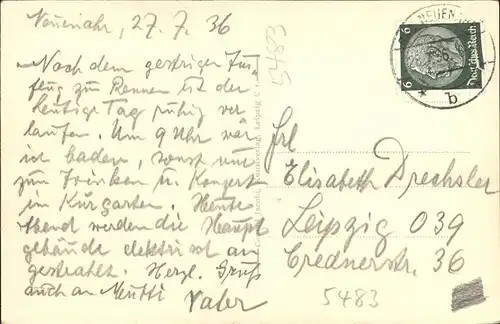 Neuenahr, 27. 7. 36
Nach dem gestrigen Aus-
flug zu Rennen ist der
heutige Tag ruhig ver
laufen. Um 9 Uhr war
ich baden, sonst nur
zum Trinken u. Konzert
im Kurgarten. Heute
Abend werden die Haupt
gebäude elektrisch an
gestrahlt. Herzl. Gruß
auch an Mutti Vater
5483
Frl
Elisabeth Drechsler
Leipzig O39
Crednerstr. 36
5483
6 6
Deutsches Reich
b